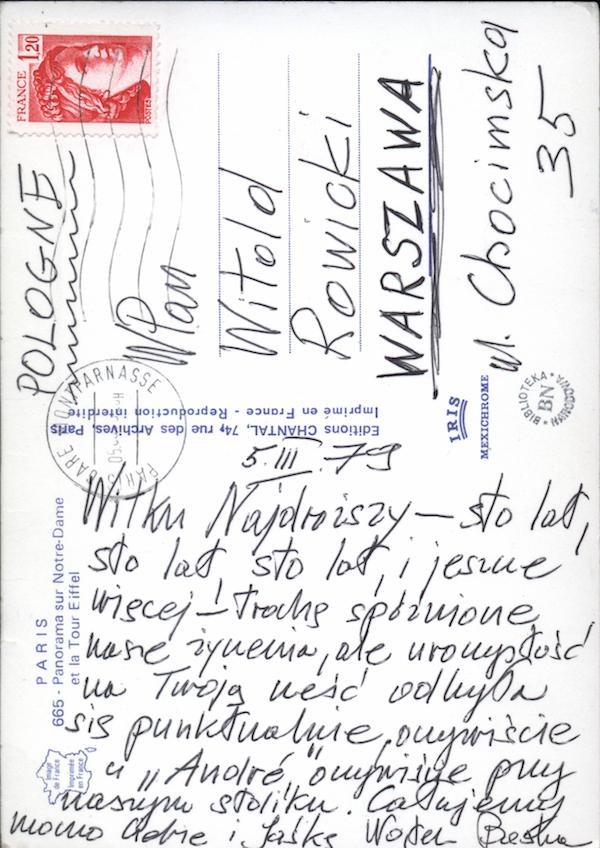 FRANCE 1,20
POSTES
POLOGNE
WPan
Witold
Rowicki
WARSZAWA
ul. Chocimska
35
GARE MONTPARNASSE
PARIS
Editions CHANTAL, 74, rue des Archives, Paris
Imprimé en France - Reproduction interdite
IRIS
MEXICHROME
BIBLIOTEKA NARODOWA
BN
PARIS
665 - Panorama sur Notre-Dame
et la Tour Eiffel
Image de France
Imprimée en France
5.III.79
Wilku Najdroższy – sto lat,
sto lat, sto lat, i jeszcze
więcej – trochę spóźnione
nasze życzenia, ale uroczystość
na Twoją cześć odbyła
się punktualnie, oczywiście
u „André", oczywiście przy
naszym stoliku. Całujemy
mocno Ciebie i Jaśkę